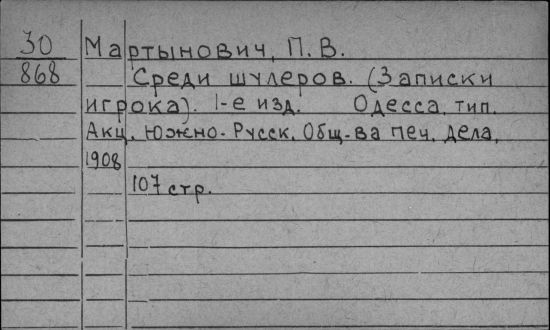 30 Мартынович, П. В.
868 Среди шулеров. (Записки
игрока). 1-е изд. Одесса, тип.
Акц. Южно-Русск. Общ-ва печ. дела,
1908
107 стр.